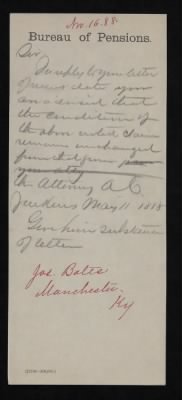 Nov. 16. 88.
Bureau of Pensions.
Sir
In reply to your letter
of recent date you
are advised that
the condition of
the above cited claim
remains unchanged
the Attorney A. C.
Jenkens May 11 1888
Give him substance
of letter
Jas. Bates
Manchester.
Ky